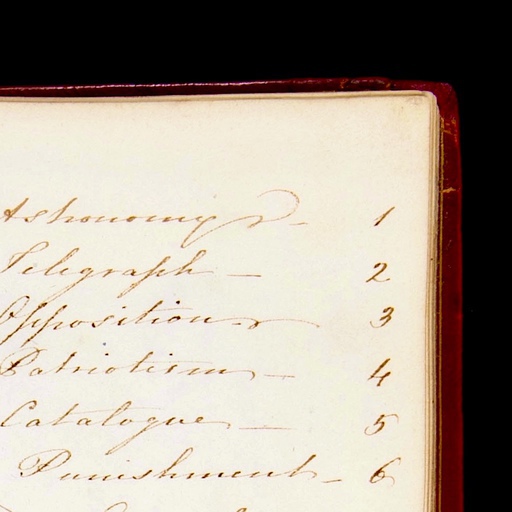 Astronomy - 1
Telegraph - 2
Opposition 3
Patriotism - 4
Catalogue - 5
Punishment - 6